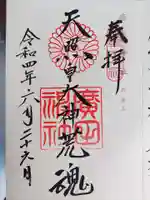 奉拝
天照皇大神荒魂
廣田
神社
令和四年六月二十六日